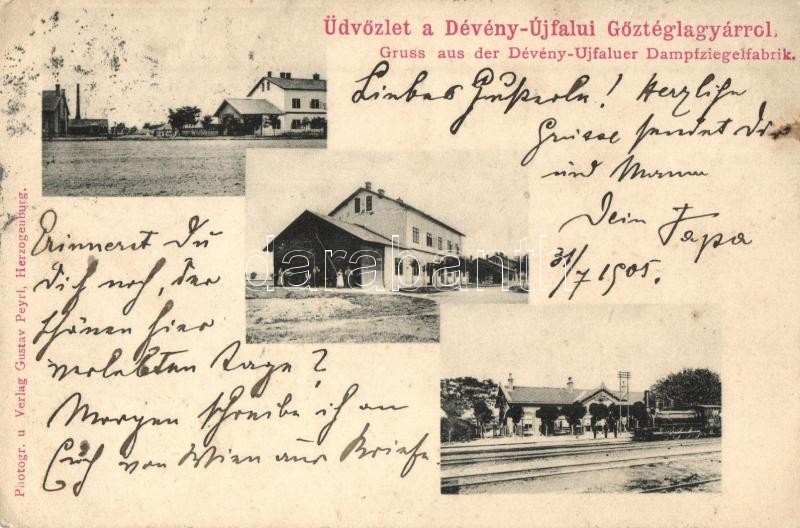 Üdvőzlet a Dévény-Újfalui Gőztéglagyárról.
Gruss aus der Dévény-Ujfaluer Dampfziegelfabrik.
Liebes Gusterle! Herzliche
Grüsse sendet Dir
und Mama
Dein Papa
31/7 1905.
Erinnerst Du
Dich noch, der
schönen hier
verlebten Tage?
Morgen schreibe ich an
Euch von Wien aus Briefe.
Photogr. u Verlag Gustav Peyrl, Herzogenburg.
darabanth